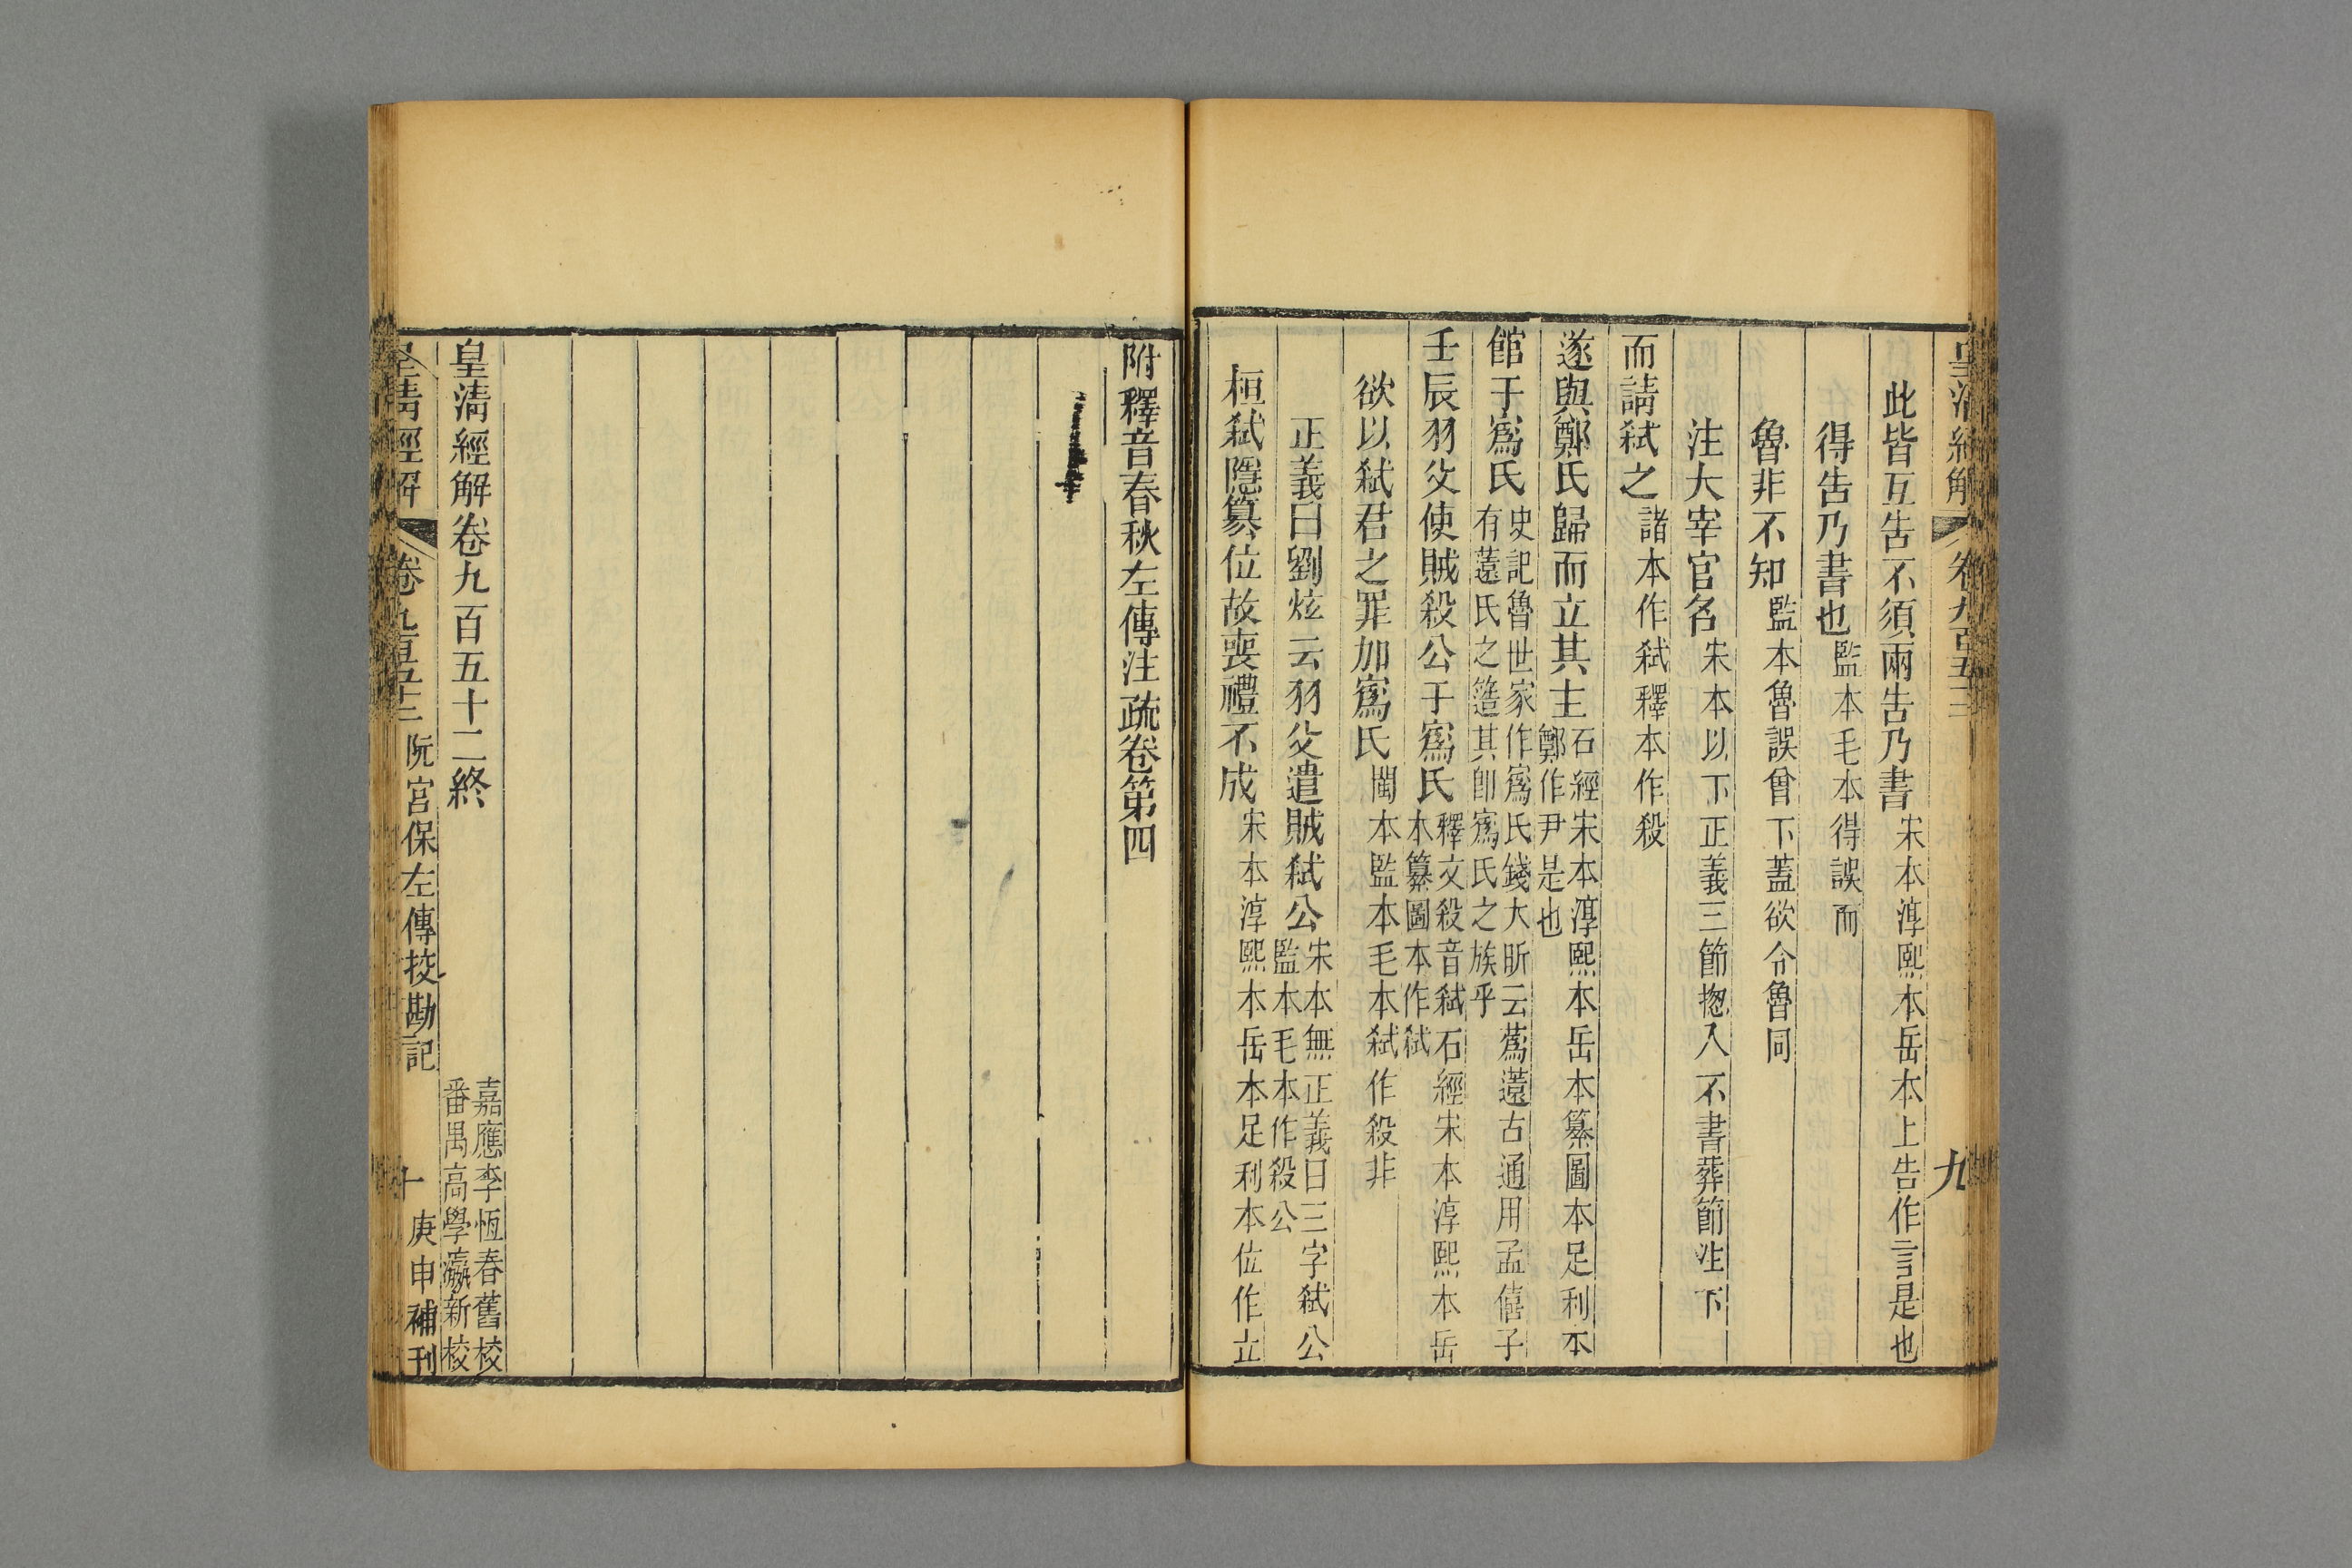 皇清經解 卷九百五十二 九
此皆互告不須兩告乃書宋本淳熙本岳本上告作言是也
得告乃書也監本毛本得誤而
魯非不知監本魯誤曾下蓋欲令魯同
注大宰官名宋本以下正義三節揔入不書葬節注下
而請弒之諸本作弒釋本作殺
遂與鄭氏歸而立其主石經宋本淳熙本岳本纂圖本足利本
鄭作尹是也
館于寪氏史記魯世家作寪氏錢大昕云蔿薳古通用孟僖子
有薳氏之簉其卽寪氏之族乎
壬辰羽父使賊殺公于寪氏釋文殺音弒石經宋本淳熙本岳
本纂圖本作弒
欲以弒君之罪加寪氏閩本監本毛本弒作殺非
正義曰劉炫云羽父遣賊弒公宋本無正義曰三字弒公
監本毛本作殺公
桓弒隱篡位故喪禮不成宋本淳熙本岳本足利本位作立
附釋音春秋左傳注疏卷第四
皇清經解卷九百五十二終
嘉應李恆春舊校
番禺高學瀛新校
皇清經解 卷九百五十二 阮宮保左傳挍勘記 十 庚申補刊